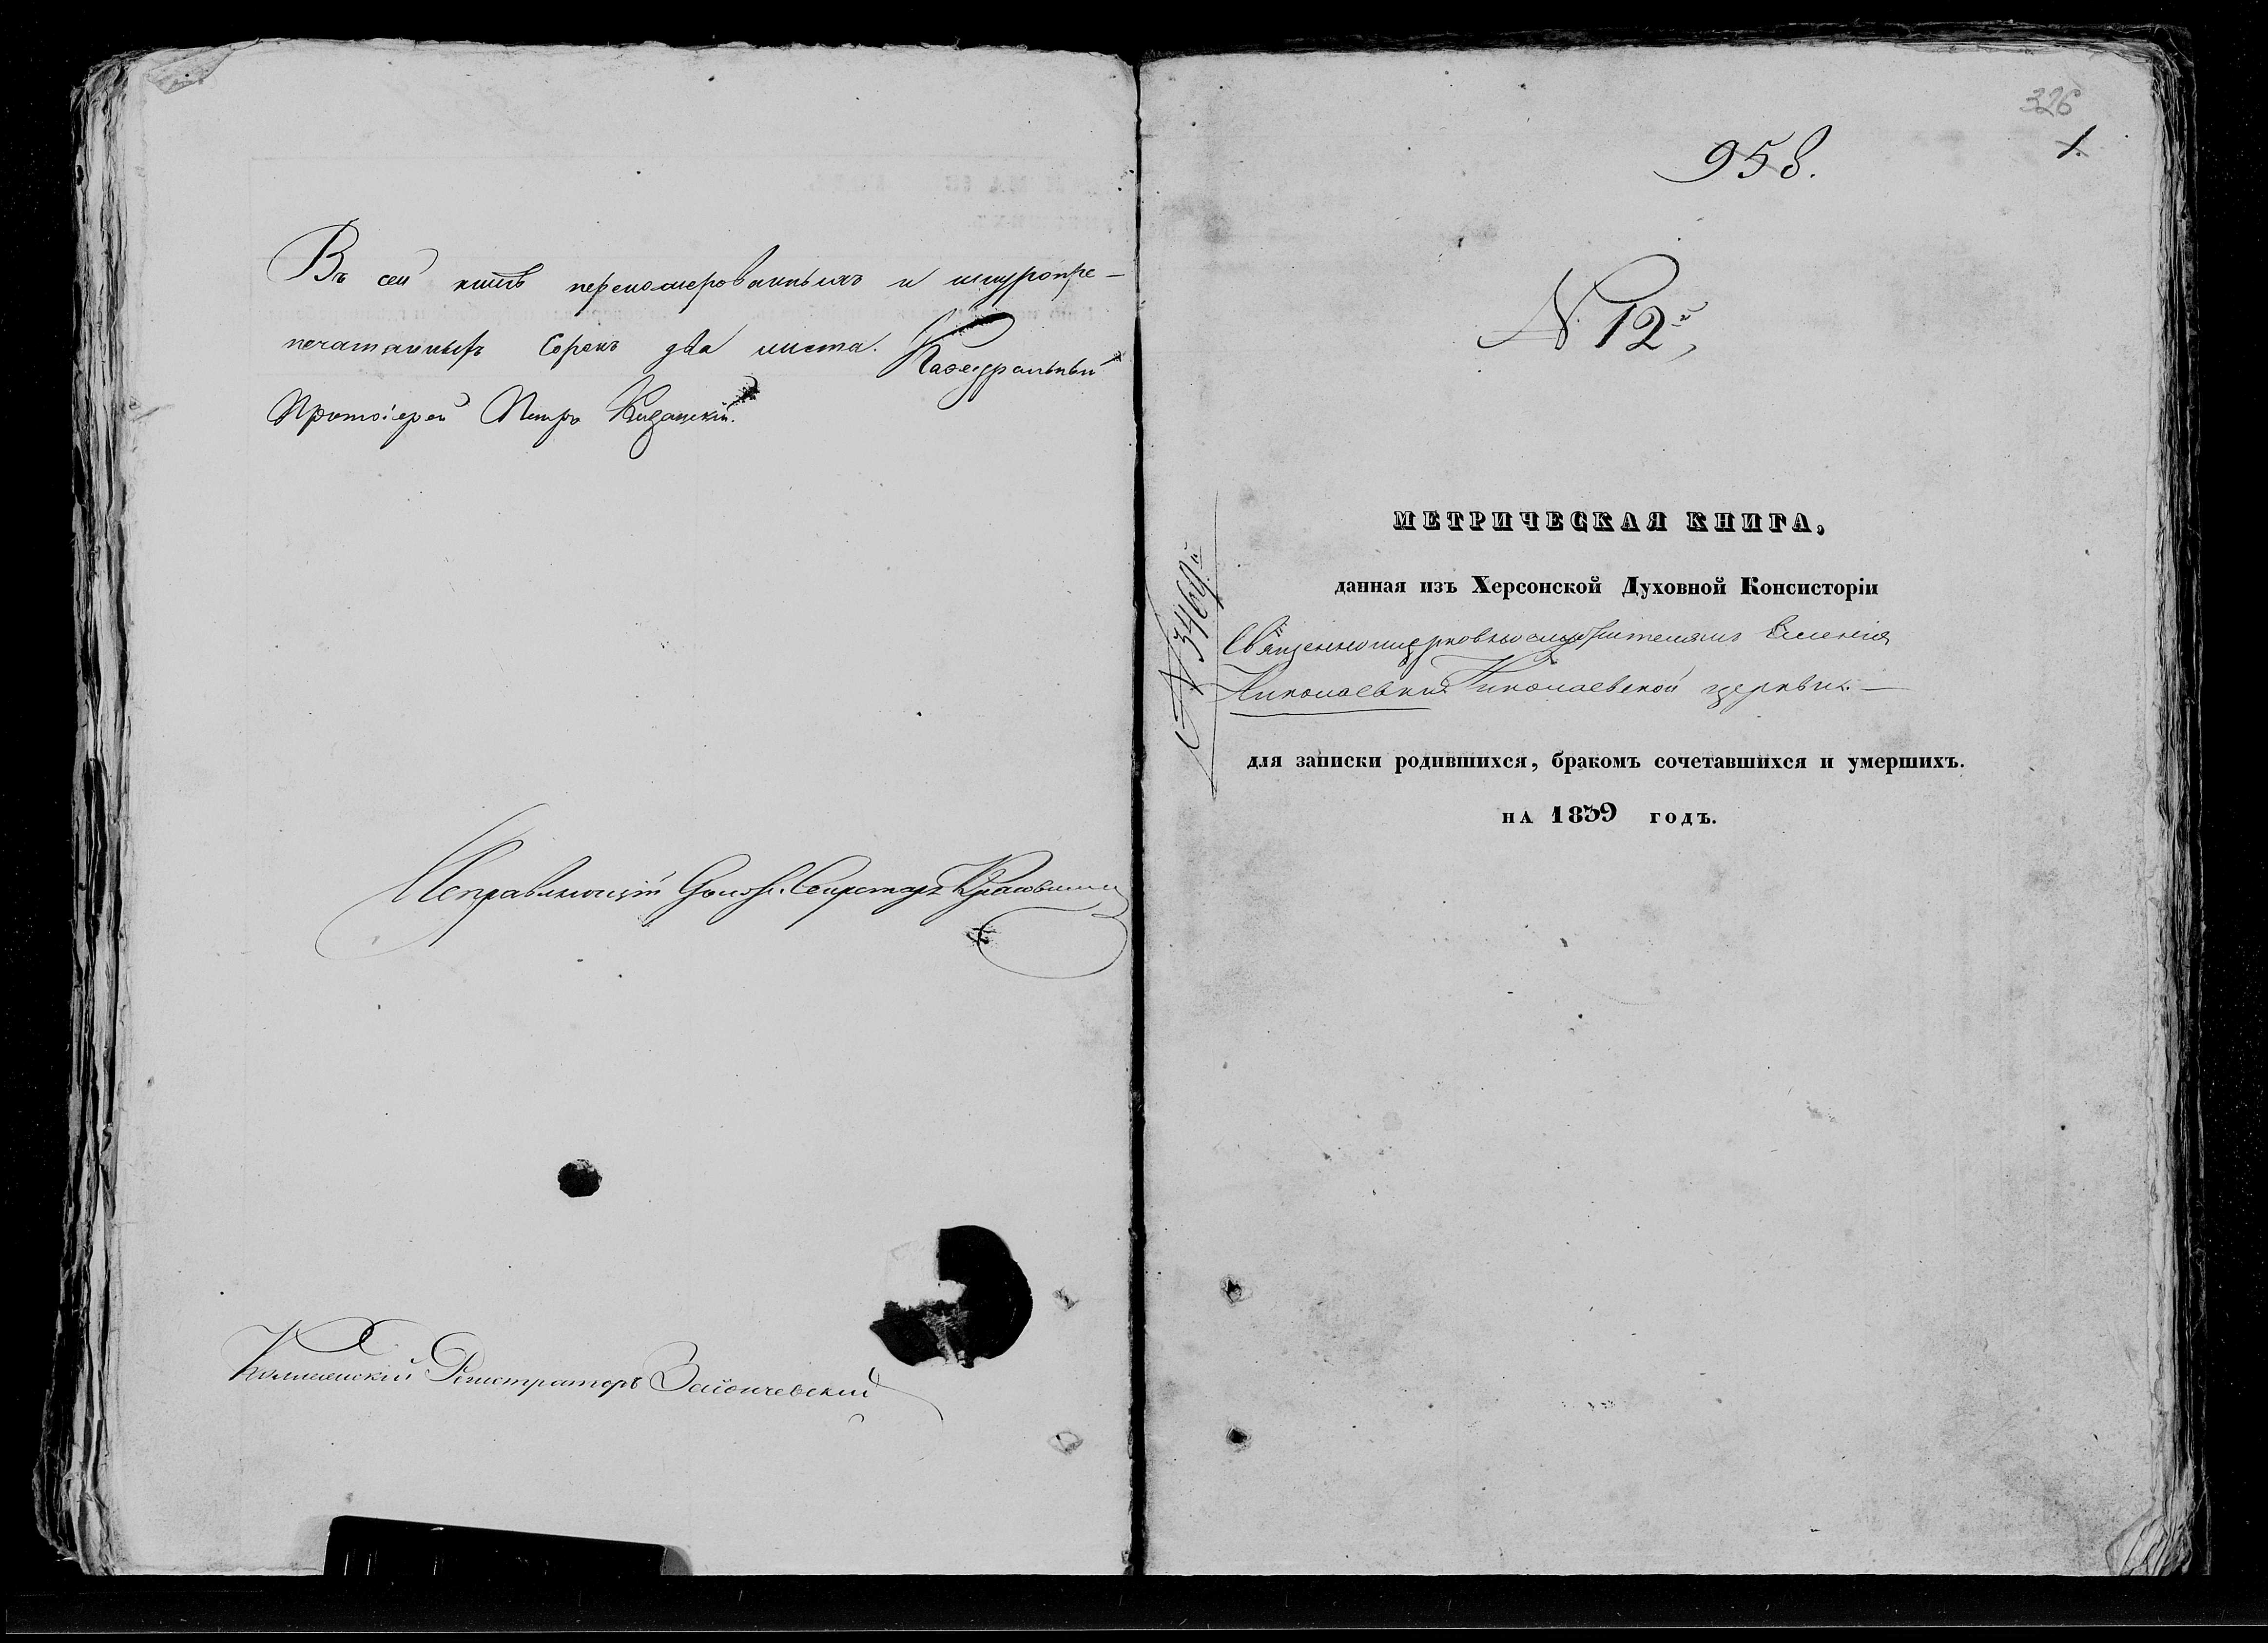 Въ сей книгѣ перенумерованныхъ и шнуропре-
печатанныхъ Сорокъ два листа. Кафедральный
Протоіерей Петръ
Исправляющій Секретарь
Коллежскій Регистраторъ Зайончевскій
326
1.
958.
N. 12й,
N 3469й
МЕТРИЧЕСКАЯ КНИГА,
данная изъ Херсонской Духовной Консисторіи
Священноцерковнослужителямъ Селенія
Николаевки Николаевской церкви.—
для записки родившихся, бракомъ сочетавшихся и умершихъ.
НА 1839 ГОДЪ.